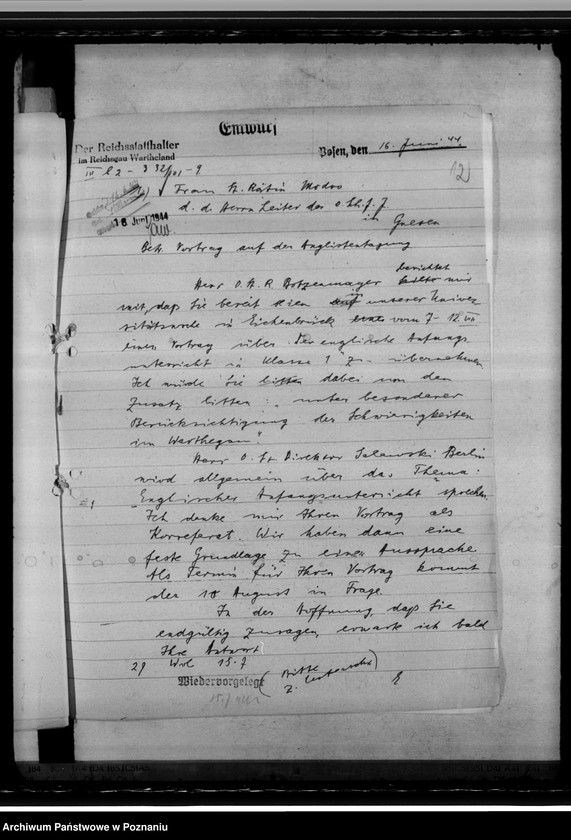 Entwurf
Der Reichsstatthalter
im Reichsgau Wartheland
Posen, den 16. Juni 44.
IV e 2 - 3 32/01 - 9
12
1) Frau St. Rätin
d. d. Herrn Leiter der O.Sch. f. J.
in Gnesen
16 Juni 1944
Betr. Vortrag auf der Anglistentagung
Herr O. St. R. berichtet mir
mit, daß Sie bereit seien auf unserer
in Eichenbrück vom 7-12. VIII
einen Vortrag über "Der englische Anfangs
unterricht in Klasse 1 zu übernehmen.
Ich würde Sie bitten dabei um den
Zusatz bitten: "unter besonderer
Berücksichtigung der Schwierigkeiten
im Warthegau".
Herr O. St. Direktor Salewski Berlin
wird allgemein über das Thema:
"Englischer Anfangsunterricht sprechen.
Ich denke mir Ihren Vortrag als
Korreferat. Wir haben dann eine
feste Grundlage zu einer Aussprache.
Als Termin für Ihren Vortrag kommt
der 10 August in Frage.
In der Hoffnung, daß Sie
endgültig zusagen, erwarte ich bald
Ihre Antwort
2) Wvl 15.7
Wiedervorgelegt
Bitte
z.
Archiwum Państwowe w Poznaniu